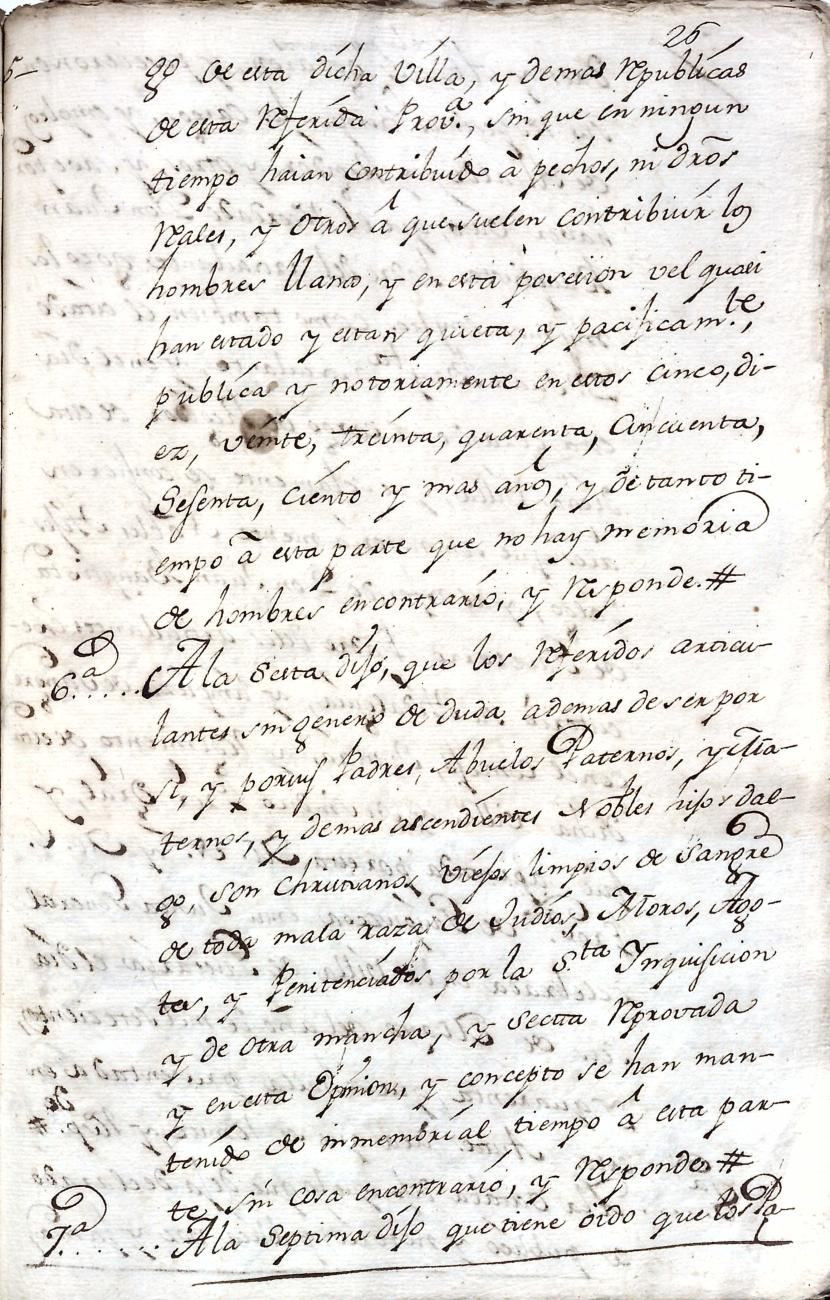 26
go de esta dicha Villa, y demas Republicas
de esta Referida Prov.ª, sin que en ningun
tiempo haian contribuido à pechos, ni dr̃os
Reales, y otros à que suelen contribuir los
hombres llanos, y en esta posesion vel quasi
han estado y estan quieta, y pacificam.te,
publica y notoriamente en estos cinco, di-
ez, veinte, treinta, quarenta, Cincuenta,
Sesenta, Ciento y mas años, y de tanto ti-
empo à esta parte que no hay memoria
de hombres en contrario, y Responde. #
6.ª..... A la Sesta dijo, que los Referidos articu-
lantes sin genero de duda ademas de ser por
si, y por sus Padres, Abuelos Paternos, y Ma-
ternos, y demas ascendientes Nobles hijos dal-
go, son Christianos viejos limpios de Sangre
de toda mala raza de Judios, Moros, Ago-
tes, y Penitenciados por la S.ta Inquisicion
y de otra mancha, y Secta Reprovada
y en esta Opinion, y concepto se han man-
tenido de inmemorial tiempo à esta par-
te sin cosa en contrario, y Responde #
7.ª...... A la Septima dijo que tiene oido que los Pa-